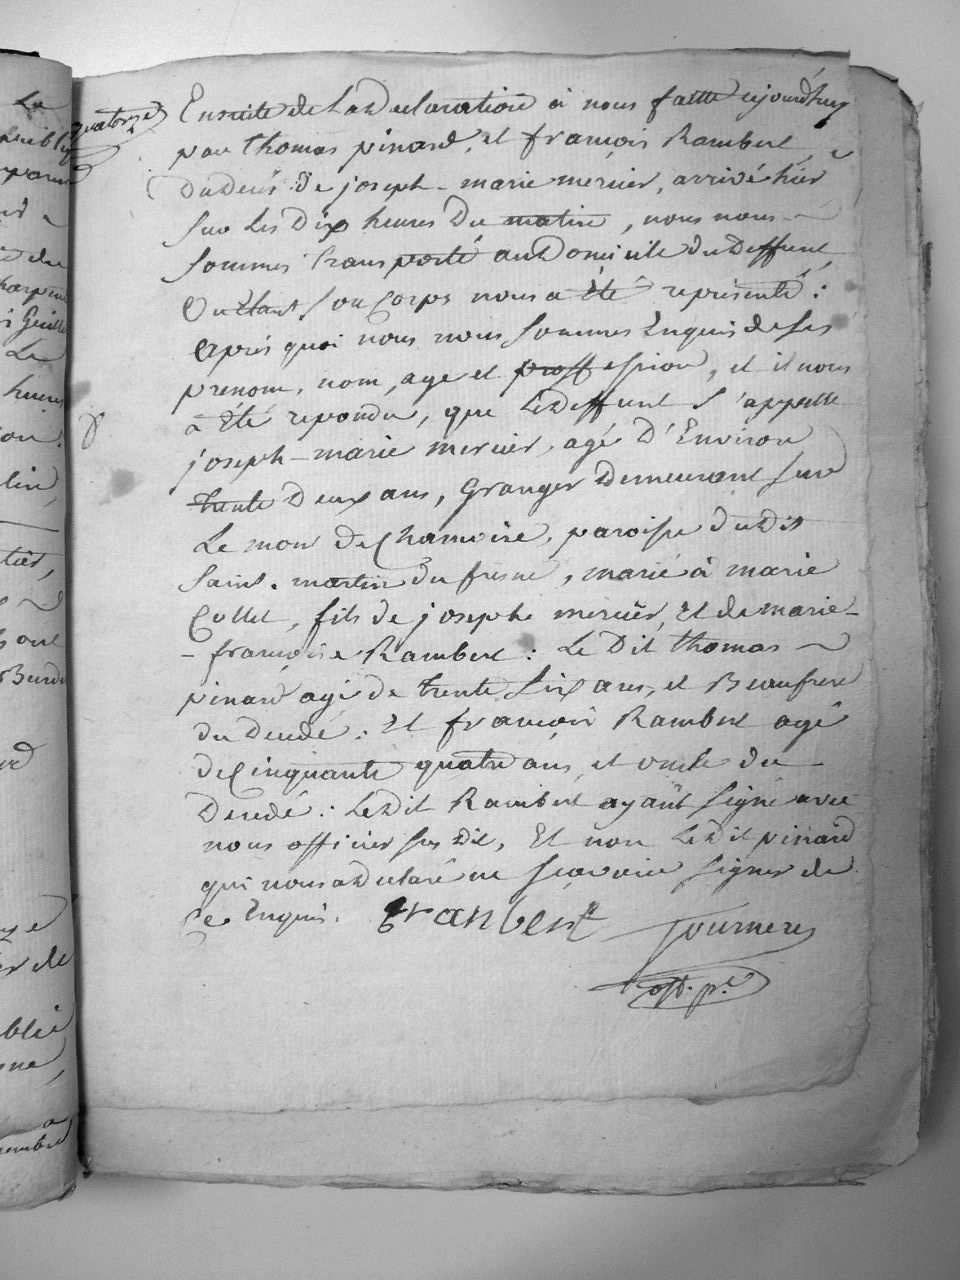 quatorze
Ensuite de La declaration à nous faitte cejourd'huy
par thomas pinard, et françois Rambert,
du deces de joseph-marie mercier, arrivé hier
sur Les Dix heures Du matin, nous nous
sommes transporté au Domicile du deffunt,
Ou étant son Corps nous a été représenté :
Après quoi nous nous sommes Enquis de ses
prenom, nom, age et proffession, et il nous
à été repondu, que Le deffunt s'appelle
joseph-marie mercier, agé D'Environ
trente Deux ans, Granger Demeurant sur
Le mon de Chamoise, paroisse du dit
saint. martin du fresne, marié à marie
Collet, fils de josephe mercier, Et de marie-
-françoise Rambert : Le Dit thomas
pinard agé de trente six ans, et Beaufrere
du decedé : Et françois Rambert agé
de Cinquante quatre ans, et oncle du
Decedé : Le Dit Rambert ayant signé avec
nous officier sus dit, Et non Le Dit pinard
qui nous a declaré ne sçavoir signer de
ce Enquis. franbert Journeres
off. p.c